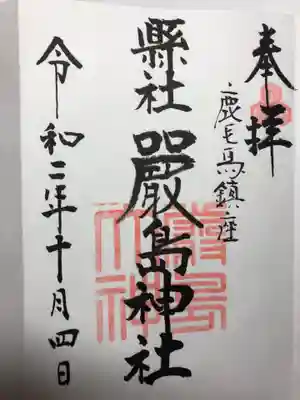 奉拝
鹿毛馬鎮座
縣社
嚴島神社
令和二年十月四日
嚴島
大神